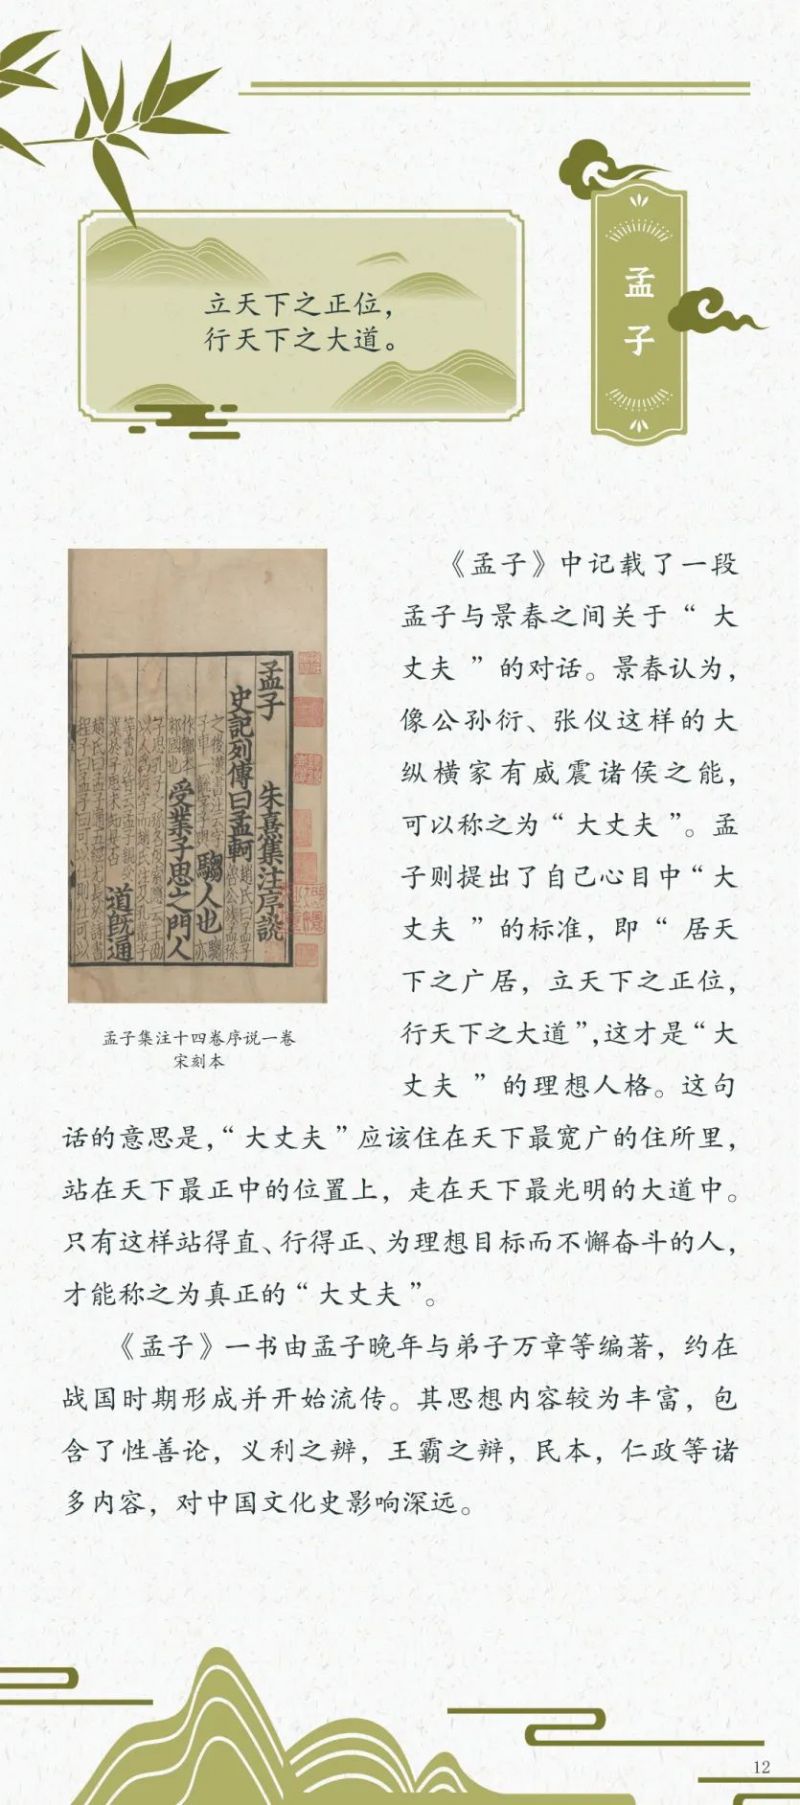 立天下之正位，
行天下之大道。
孟子
《孟子》中记载了一段
孟子与景春之间关于“大
丈夫”的对话。景春认为，
像公孙衍、张仪这样的大
纵横家有威震诸侯之能，
可以称之为“大丈夫”。孟
子则提出了自己心目中“大
丈夫”的标准，即“居天
下之广居，立天下之正位，
行天下之大道”，这才是“大
丈夫”的理想人格。这句
话的意思是，“大丈夫”应该住在天下最宽广的住所里，
站在天下最正中的位置上，走在天下最光明的大道中。
只有这样站得直、行得正、为理想目标而不懈奋斗的人，
才能称之为真正的“大丈夫”。
孟子 朱熹集注序說
史記列傳曰孟軻
騶人也
受業子思之門人
道旣通
孟子集注十四卷序说一卷
宋刻本
《孟子》一书由孟子晚年与弟子万章等编著，约在
战国时期形成并开始流传。其思想内容较为丰富，包
含了性善论，义利之辨，王霸之辩，民本，仁政等诸
多内容，对中国文化史影响深远。
12